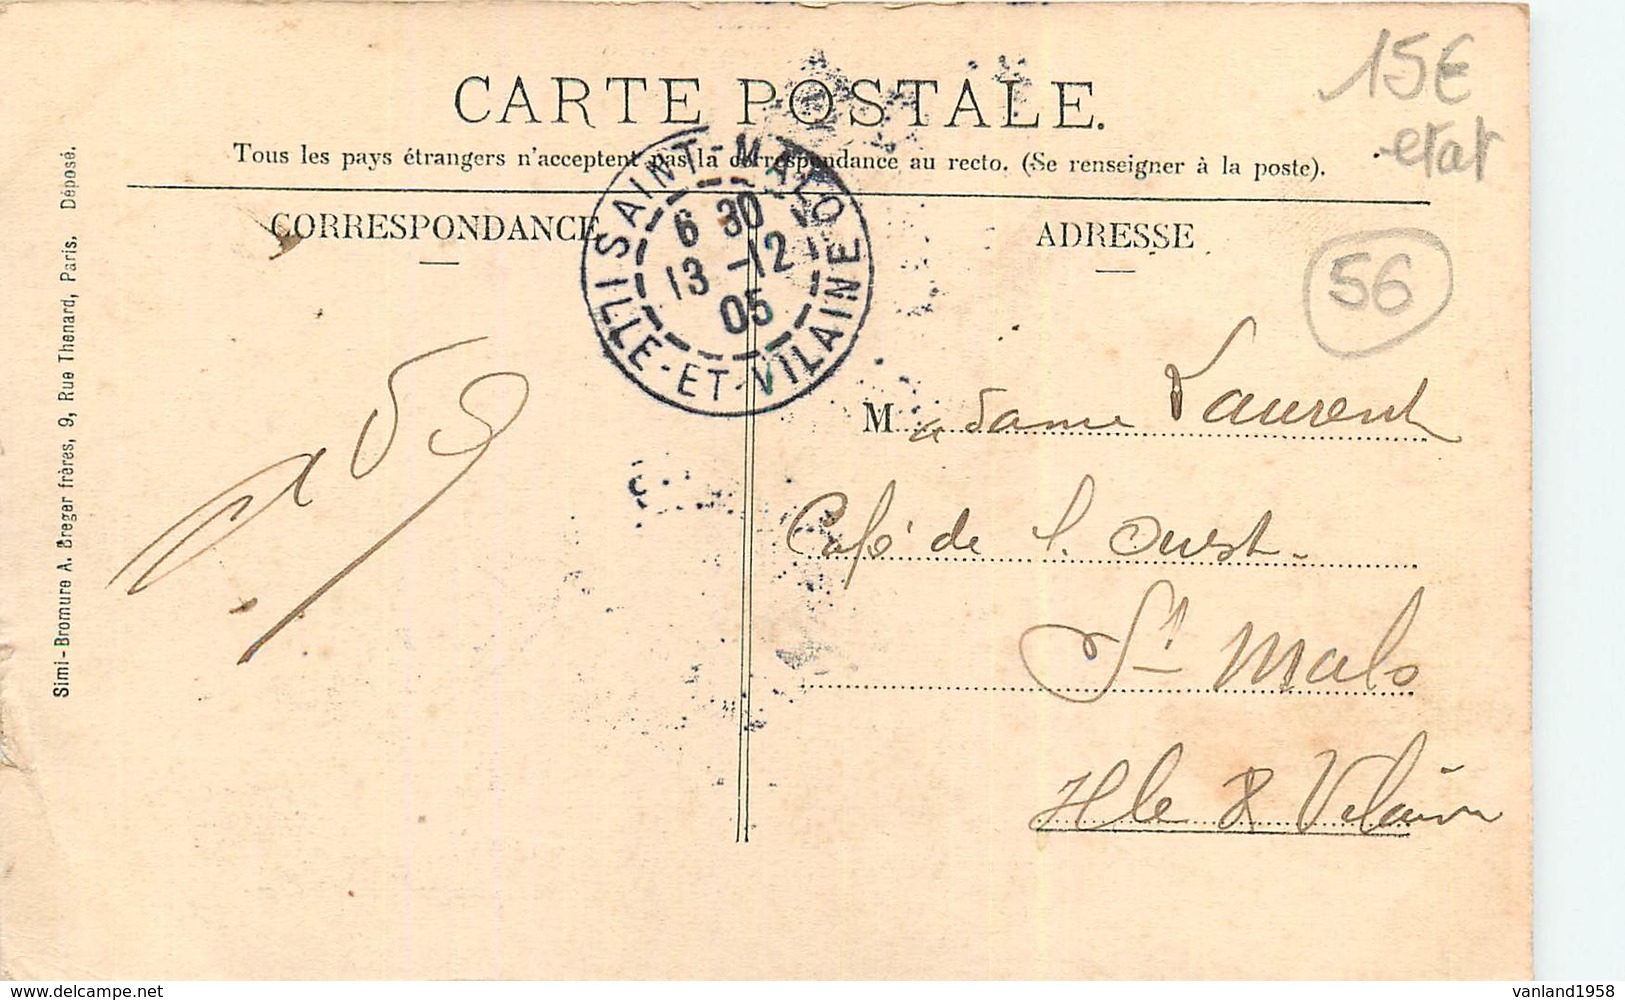 CARTE POSTALE.
Tous les pays étrangers n'acceptent pas la correspondance au recto. (Se renseigner à la poste).
CORRESPONDANCE
ADRESSE
15€
etat
56
SAINT-MALO
6 30
13 -12
05
ILLE-ET-VILAINE
Madame Laurent
Café de l'Ouest
St Malo
Ille & Vilaine
Simi-Bromure A. Breger frères, 9, Rue Thenard, Paris. Déposé.
www.delcampe.net
vanland1958